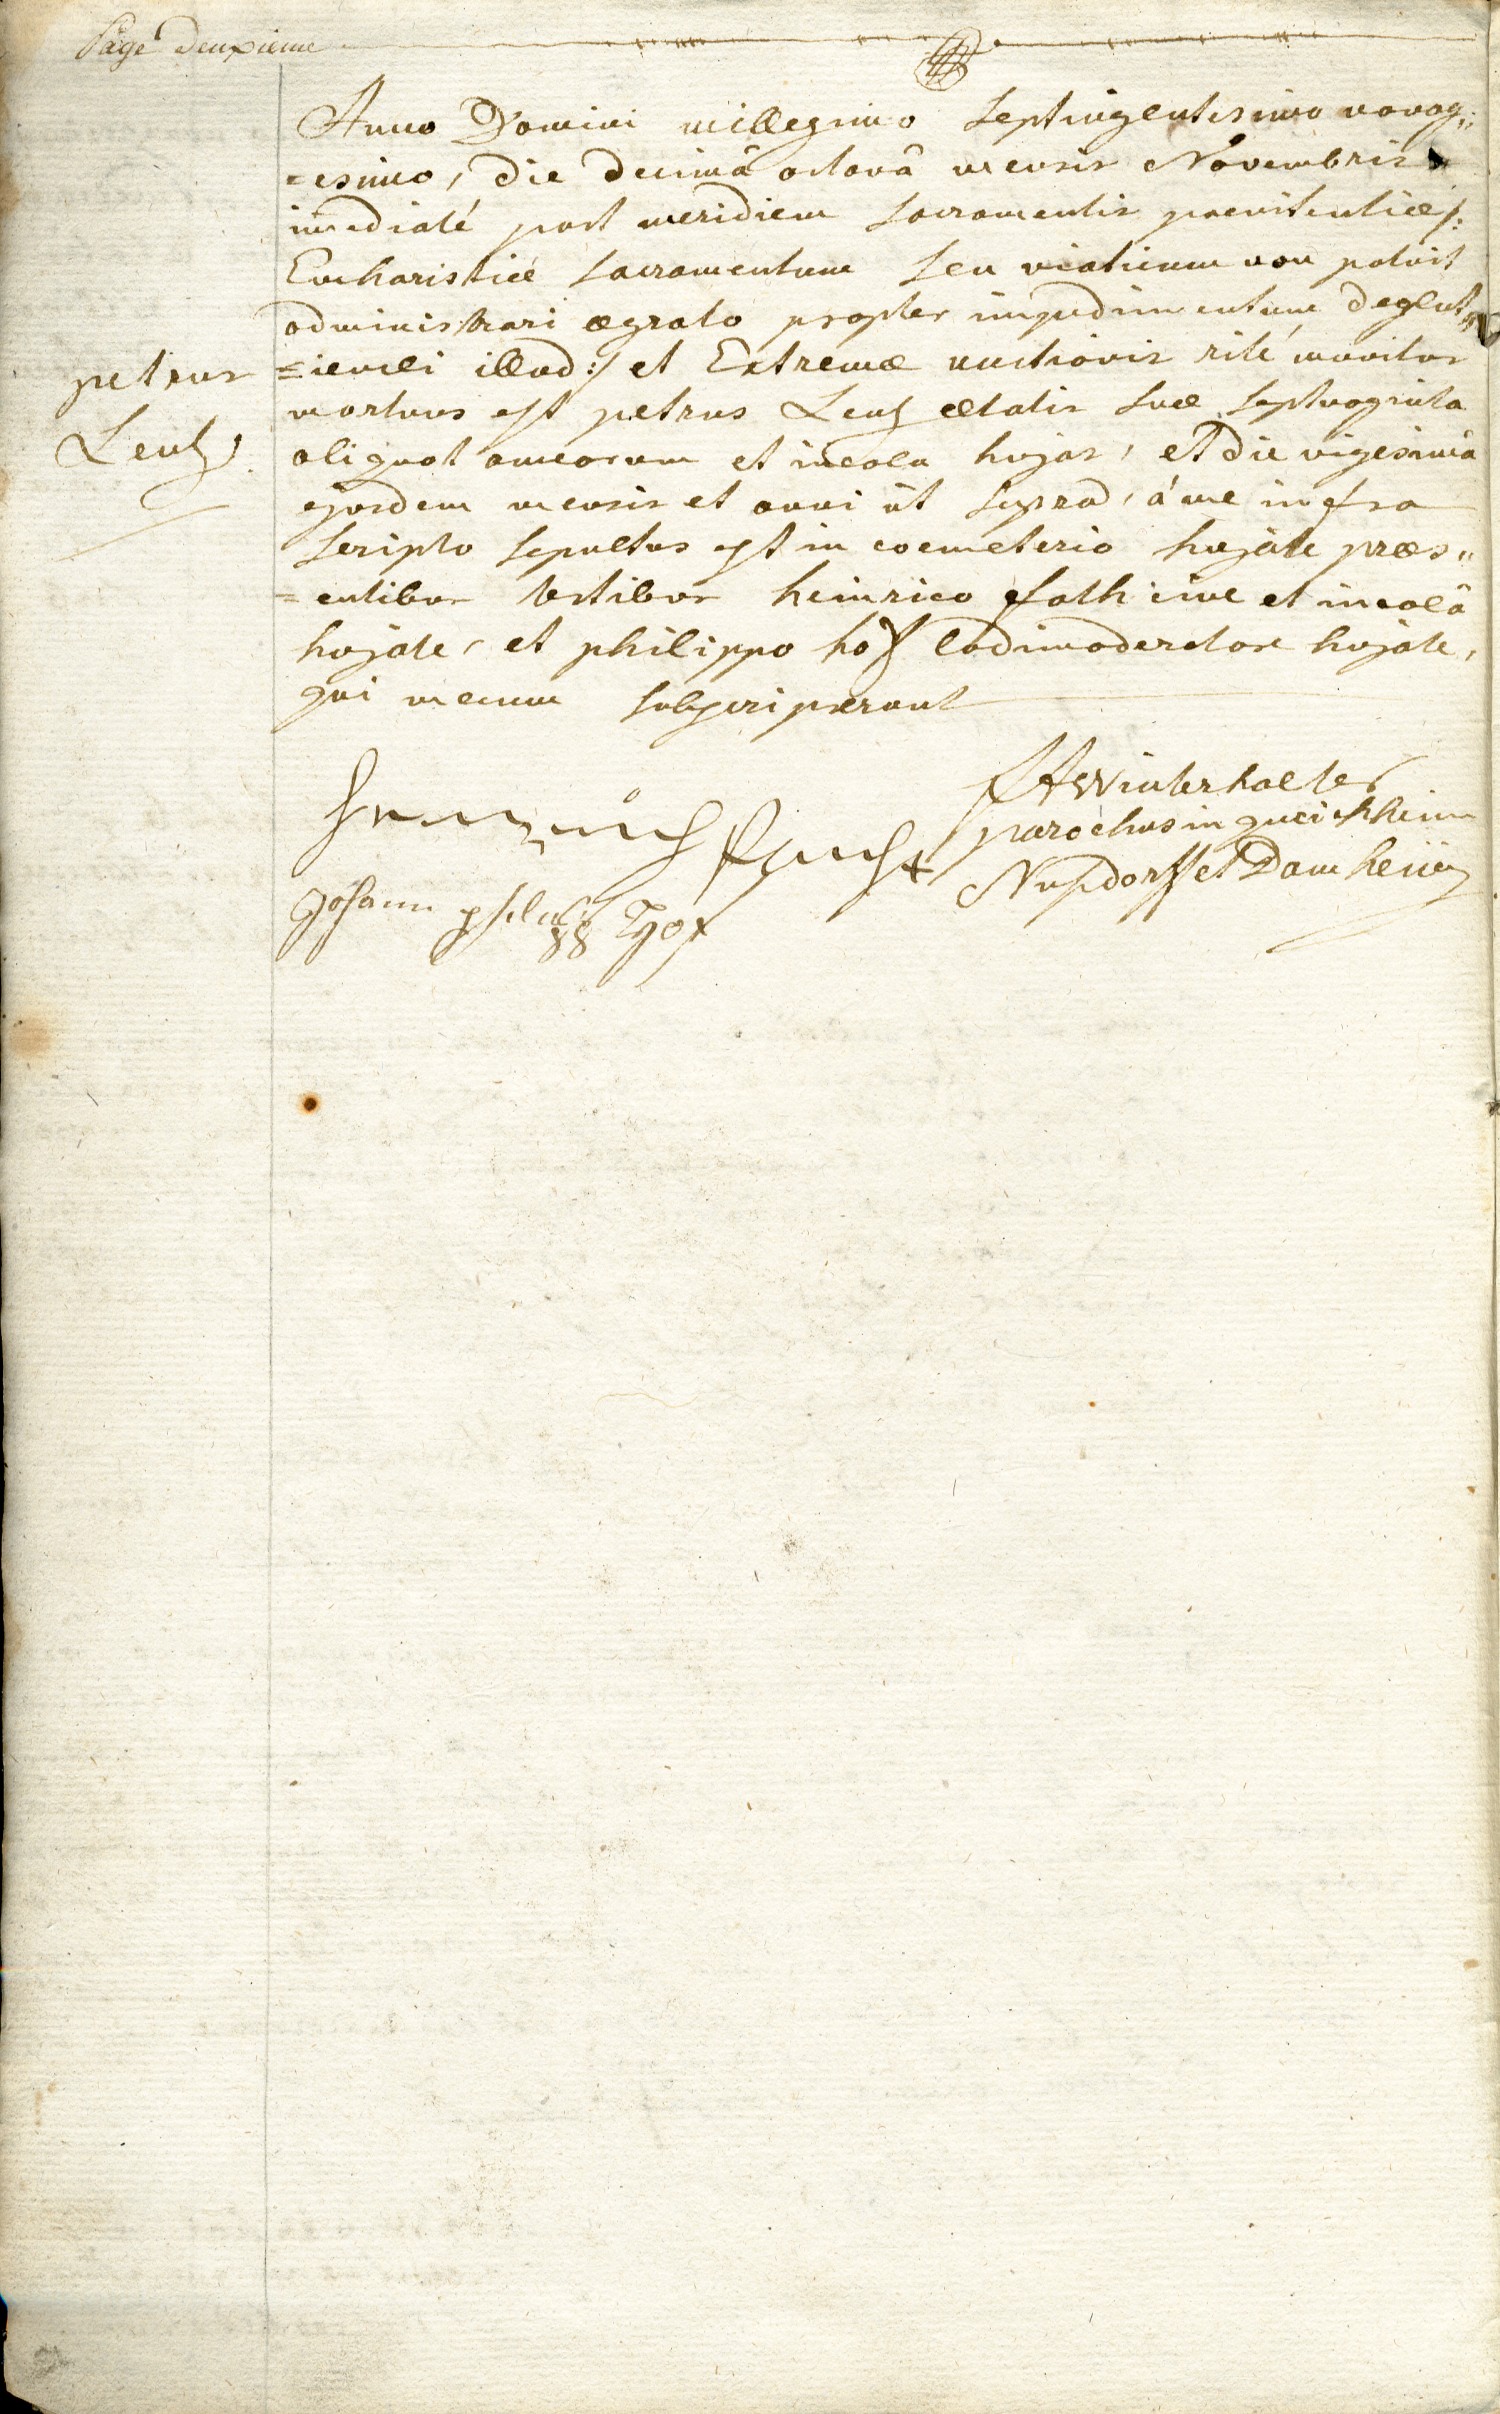 Page deuxieme
Anno Domini millesimo septingentesimo nonag::
=esimo, die decimâ octavâ mensis Novembris
imediaté post meridiem sacramentis poenitentiæ /:
Eucharistiæ sacramentum seu viaticum non potuit
administrari ægroto propter impedimentum deglut=
=iendi illud :/ et Extremæ unctionis rité munitus
mortuus est petrus Leutz ætatis suæ septuaginta
aliquot annorum et incola hujas, et die vigesimâ
ejusdem mensis et anni ût supra, á me infra
scripto sepultus est in coemeterio hujate præs"
=entibus testibus heinrico fath cive et incolâ
hujate, et philippo hoff ludimoderatore hujate,
qui mecum subscripserunt
petrus
Leutz
FA Winterhalter
parochus in queichheim
Nusdorff et Damheim
Johann philipp Hoff